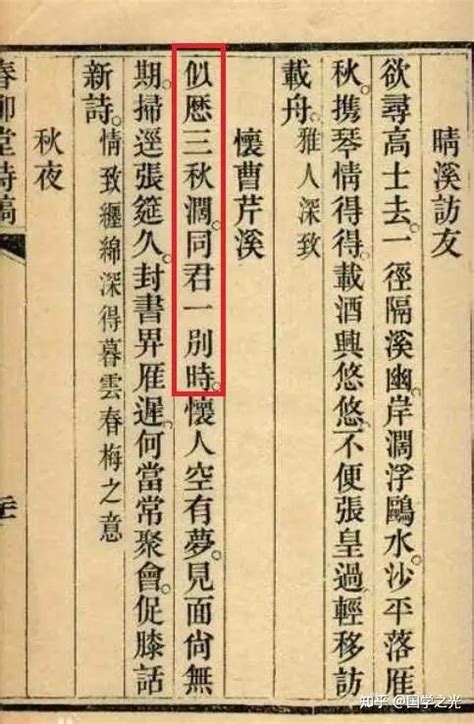 晴溪訪友
欲尋高士去。一徑隔溪幽。岸濶浮鷗水。沙平落雁
秋。携琴情得得。載酒興悠悠。不便張皇過。輕移訪
載舟。雅人深致
懷曹芹溪
似厯三秋濶。同君一別時。懷人空有夢。見面尚無
期。掃逕張筵久。封書畀雁遲。何當常聚會。促膝話
新詩。情致纏綿深得暮雲春梅之意
秋夜
春柳堂詩稿
知乎 @国学之光